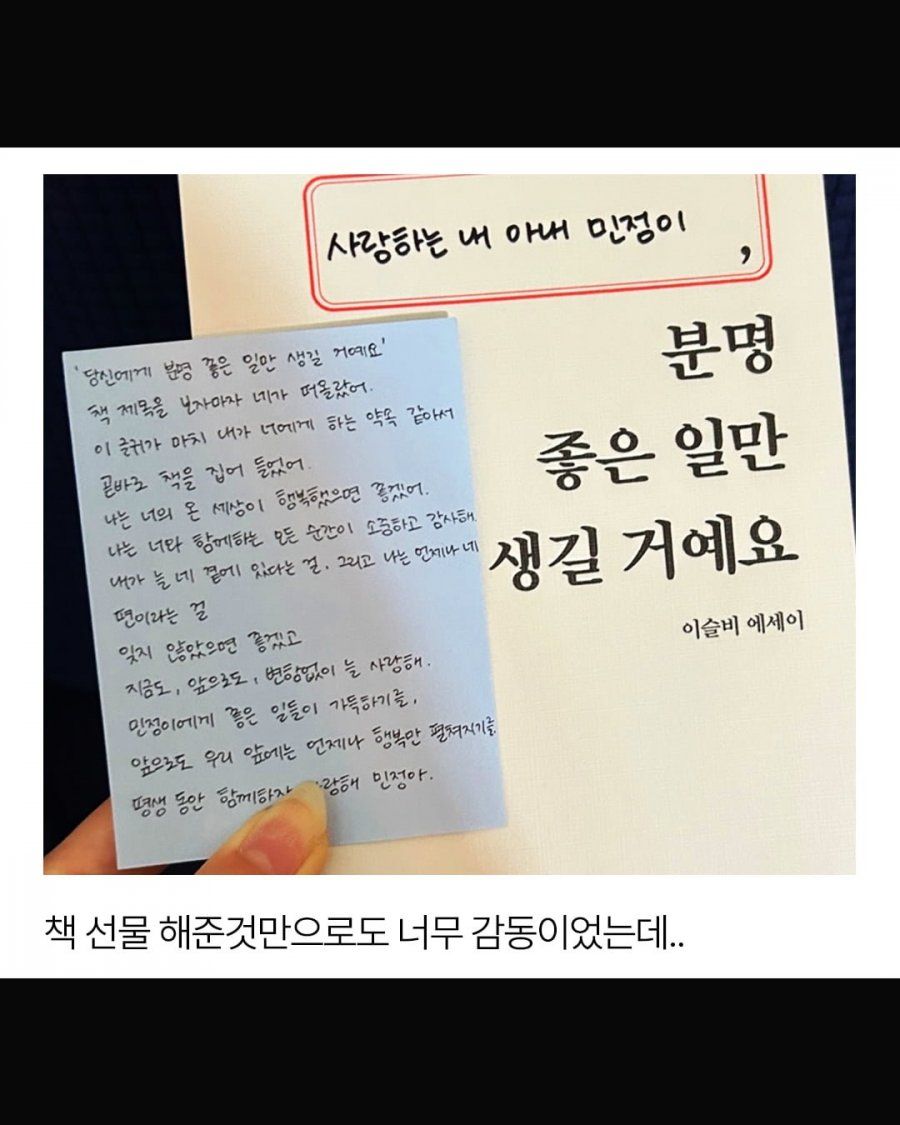 사랑하는 내 아내 민정이
,
분명
좋은 일만
생길 거예요
이슬비 에세이
'당신에게 분명 좋은 일만 생길 거예요'
책 제목을 보자마자 네가 떠올랐어.
이 글귀가 마치 내가 너에게 하는 약속 같아서
곧바로 책을 집어 들었어.
나는 너의 온 세상이 행복했으면 좋겠어.
나는 너와 함께하는 모든 순간이 소중하고 감사해.
내가 늘 네 곁에 있다는 걸. 그리고 나는 언제나 네
편이라는 걸
잊지 않았으면 좋겠고
지금도, 앞으로도, 변함없이 늘 사랑해.
민정이에게 좋은 일들이 가득하기를,
앞으로도 우리 앞에는 언제나 행복만 펼쳐지기를
평생 동안 함께하자 민정아.
책 선물 해준것만으로도 너무 감동이었는데..